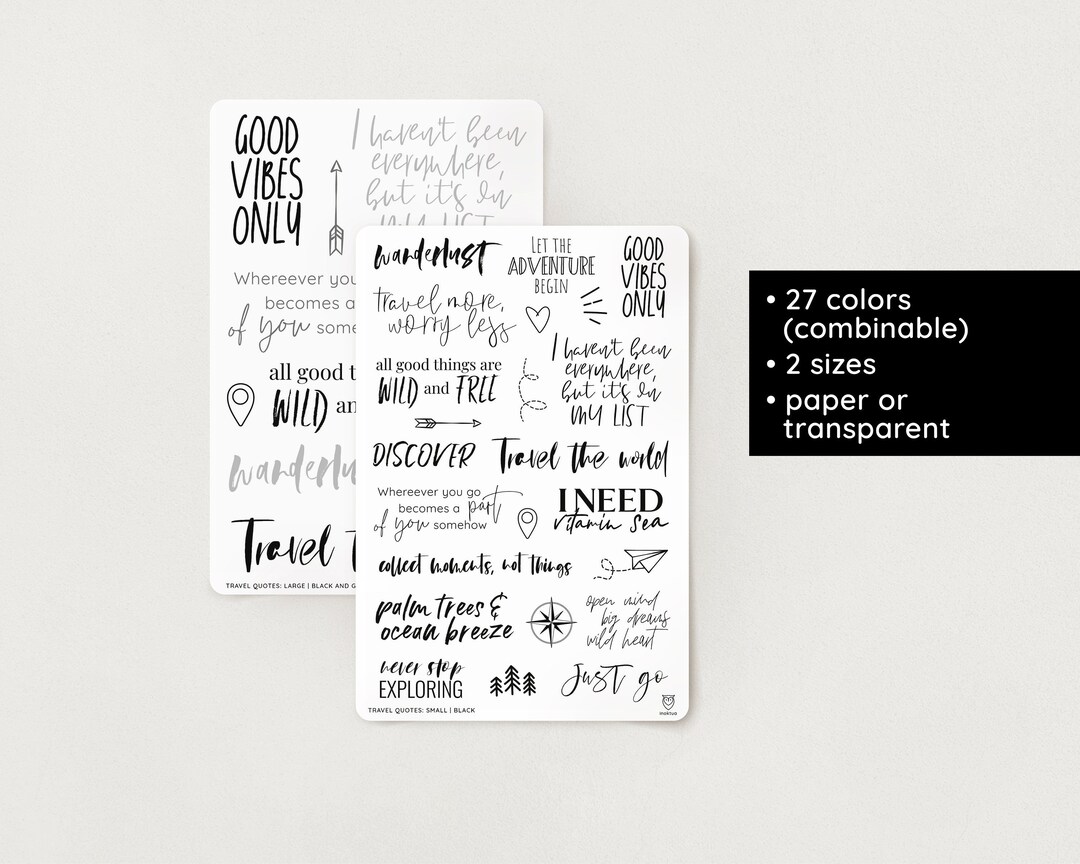 GOOD
VIBES
ONLY
I haven't been
everywhere,
but it's on
MY LIST
Whereever you
becomes a
of you some
all good t
WILD an
wanderlu
Travel t
TRAVEL QUOTES: LARGE | BLACK AND G
wanderlust
LET THE
ADVENTURE
BEGIN
GOOD
VIBES
ONLY
travel more,
worry less
I haven't been
everywhere,
but it's on
MY LIST
all good things are
WILD and FREE
DISCOVER
Travel the world
Whereever you go
becomes a part
of you somehow
I NEED
vitamin sea
collect moments, not things
palm trees &
ocean breeze
open mind
big dreams
wild heart
never stop
EXPLORING
Just go
TRAVEL QUOTES: SMALL | BLACK
inoktua
• 27 colors
(combinable)
• 2 sizes
• paper or
transparent